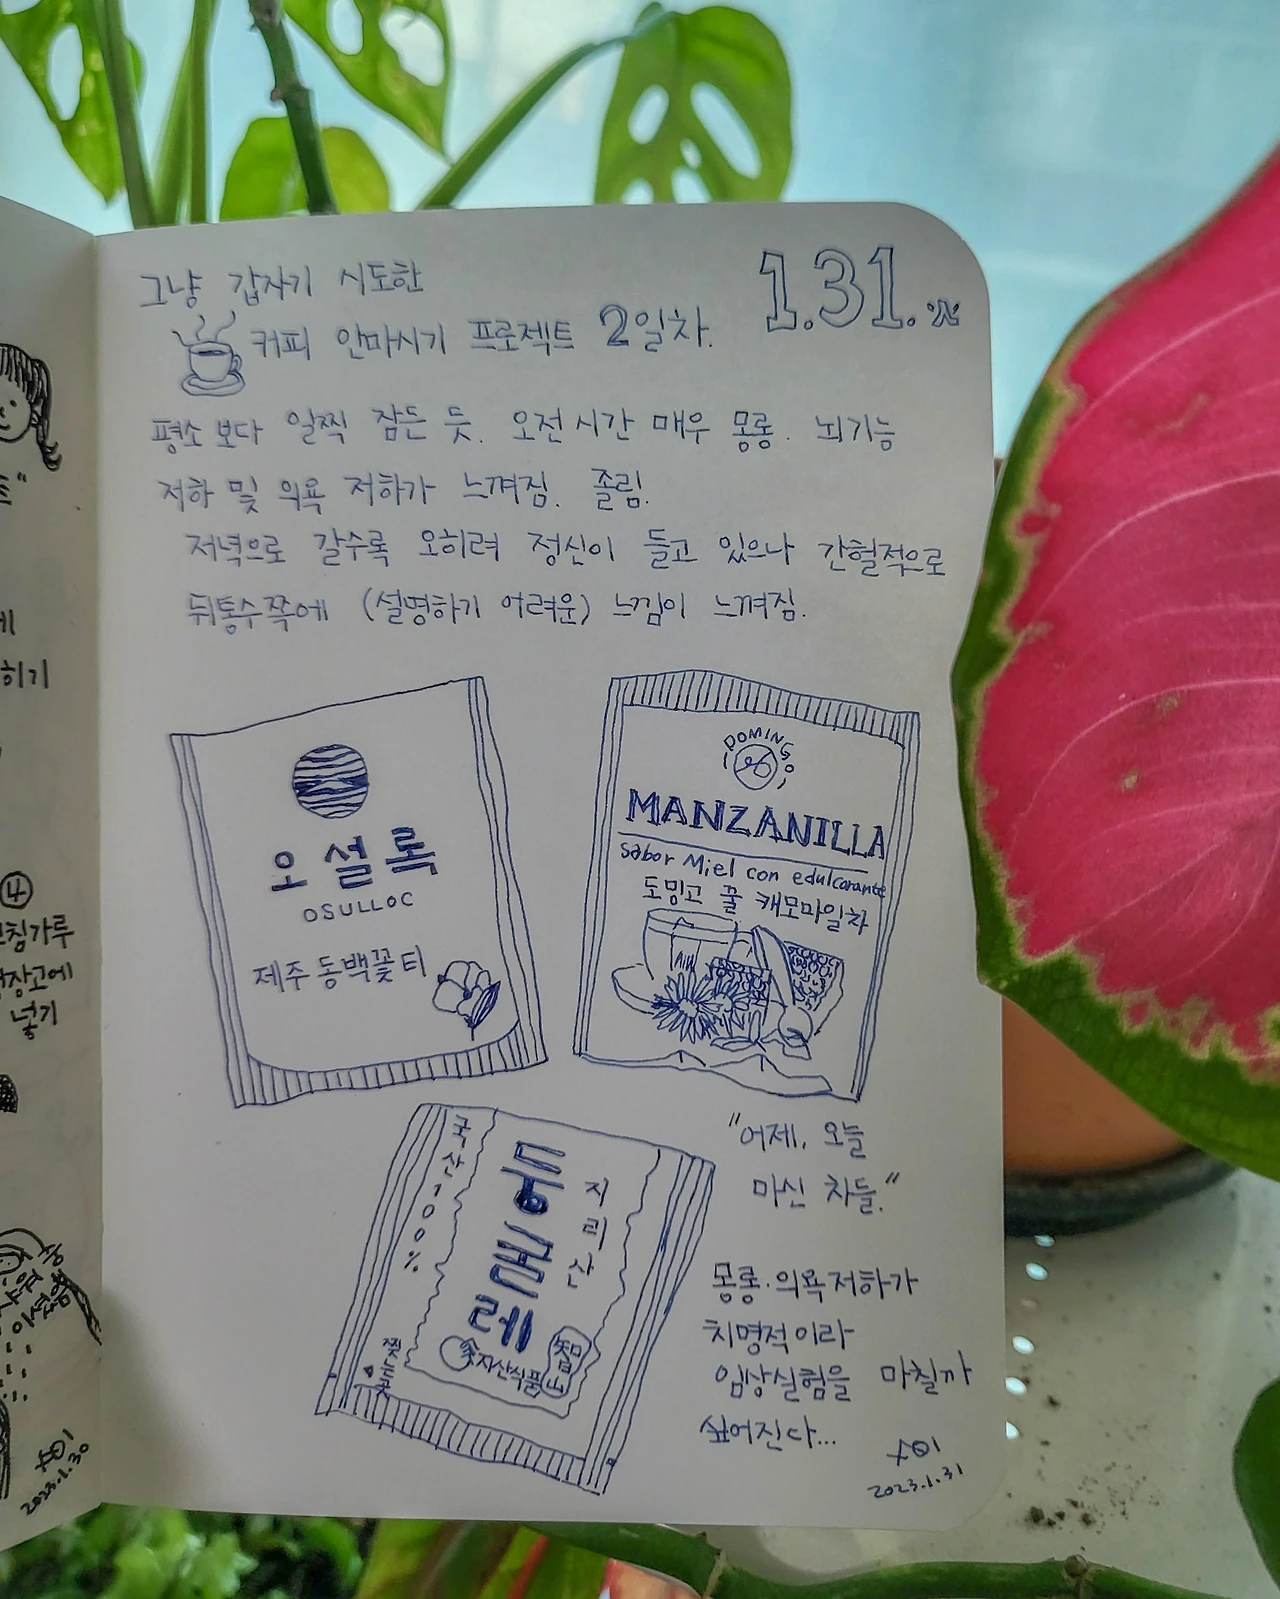 그냥 갑자기 시도한
1.31.火
커피 안마시기 프로젝트 2일차.
평소보다 일찍 잠든 듯. 오전시간 매우 몽롱. 뇌기능
저하 및 의욕 저하가 느껴짐. 졸림.
저녁으로 갈수록 오히려 정신이 들고 있으나 간헐적으로
뒤통수쪽에 (설명하기 어려운) 느낌이 느껴짐.
오설록
OSULLOC
제주동백꽃티
DOMINGO
MANZANILLA
Sabor Miel con edulcorante
도밍고 꿀 캐모마일차
국산100%
둥굴레
지리산
자산식품
智山
찢는곳
"어제, 오늘
마신 차들."
몽롱·의욕저하가
치명적이라
임상실험을 마칠까
싶어진다...
2023.1.31
트"
에
히기
④
침가루
장고에
넣기
2023.1.30